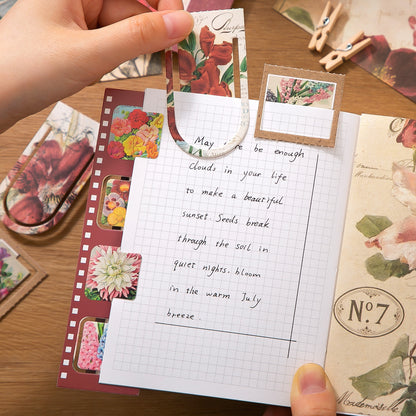 May there be enough
clouds in your life
to make a beautiful
sunset. Seeds break
through the soil in
quiet nights, bloom
in the warm July
breeze.
Nº.7
Mademoiselle